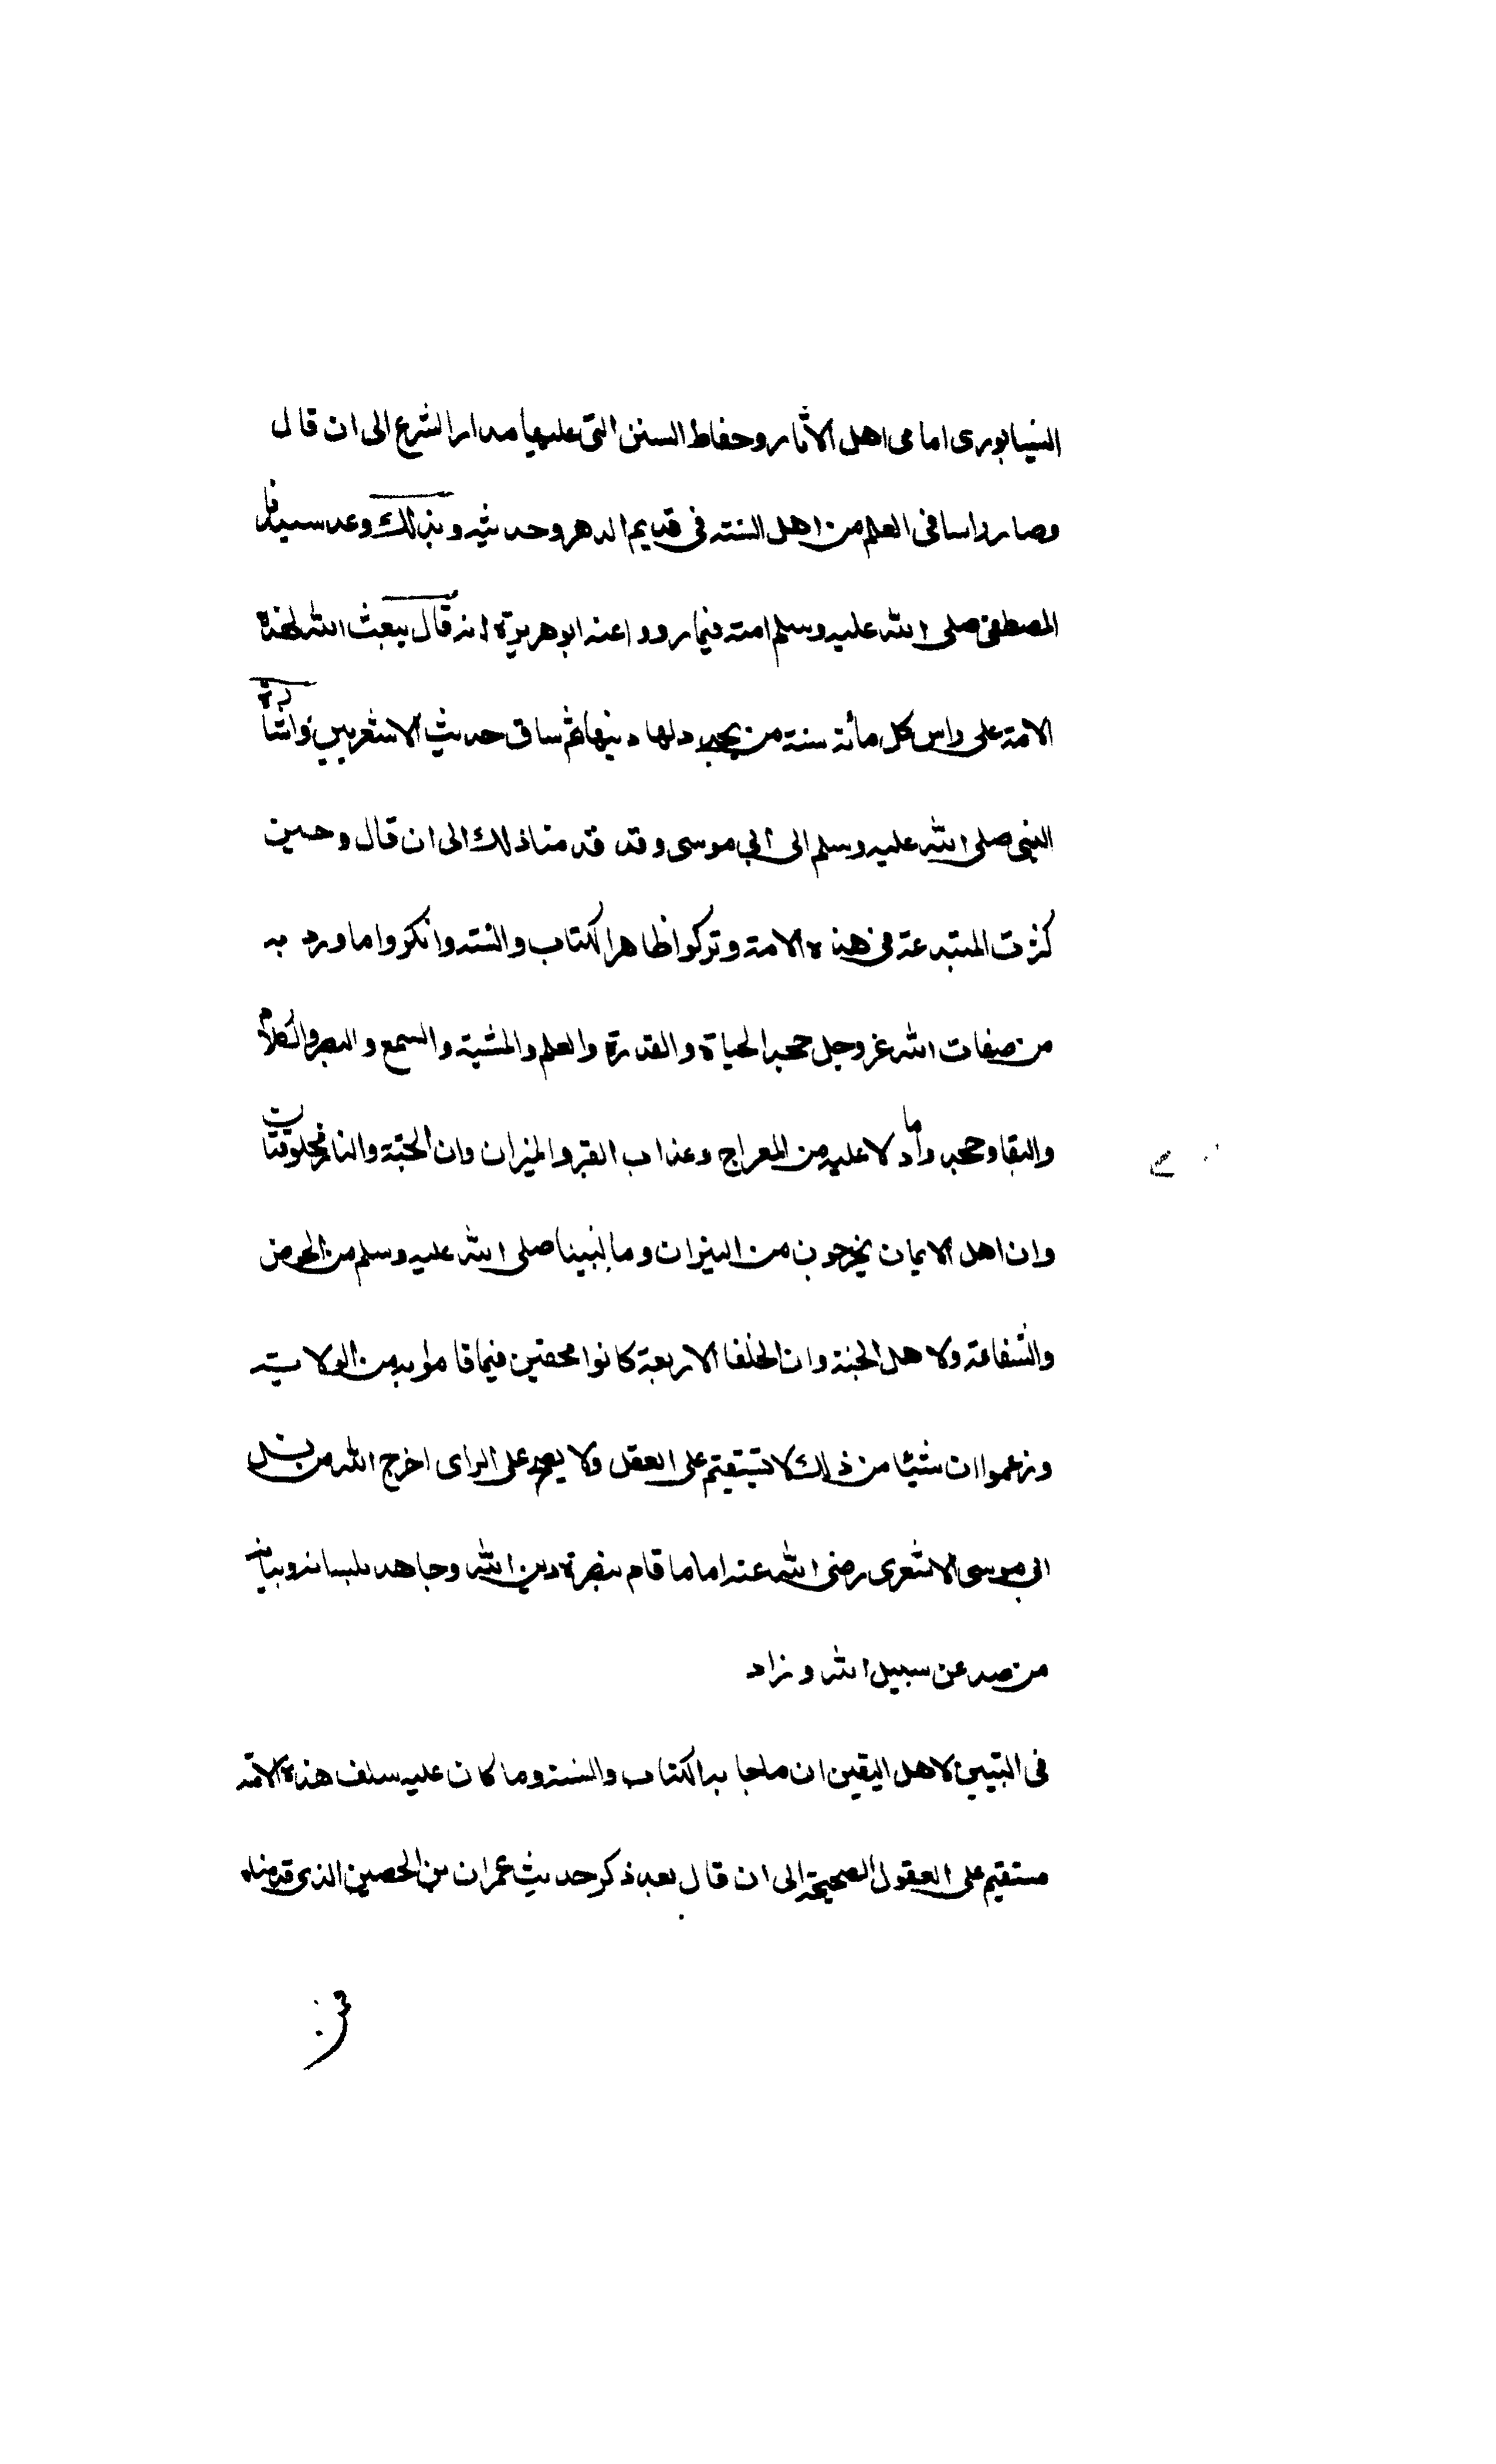 النيسابورى امامى اهل الاثار وحفاظ السنن التى عليها مدار الشرع الى ان قال
وصار راسا فى العلم من اهل السنة فى قديم الدهر وحديثه وبذلك وعد سيدنا
المصطفى صلى الله عليه وسلم امته فيما روى عنه ابو هريرة انه قال يبعث الله لهذه
الامة على راس كل مائة سنة من يجدد لها دينها ثم ساق حديث الاشعريين واشارة
النبى صلى الله عليه وسلم الى ابى موسى وقد قدمنا ذلك الى ان قال وحين
كثرت المبتدعة فى هذه الامة وتركوا ظاهر الكتاب والسنة وانكروا ما ورد به
من صفات الله عز وجل نحو الحياة والقدرة والعلم والمشية والسمع والبصر والكلام
والبقا وجحدوا ما دلا عليه من المعراج وعذاب القبر والميزان وان الجنة والنار مخلوقتان
وان اهل الايمان يخرجون من النيران وما لنبينا صلى الله عليه وسلم من الحوض
والشفاعة ولاهل الجنة وان الخلفا الاربعة كانوا محقين فيما قاموا به من الولاية
وزعموا ان شيئا من ذلك لا يستقيم على العقل ولا يصح على الراى اخرج الله من نسل
ابى موسى الاشعرى رضى الله عنه اماما قام بنصرة دين الله وجاهد بلسانه وبيانه
من صد عن سبيل الله وزاد
فى التبيين لاهل اليقين ان ما جا به الكتاب والسنة وما كان عليه سلف هذه الامة
مستقيم على العقول الصحيحة الى ان قال بعد ذكر حديث عمران بن الحصين الذى قدمناه